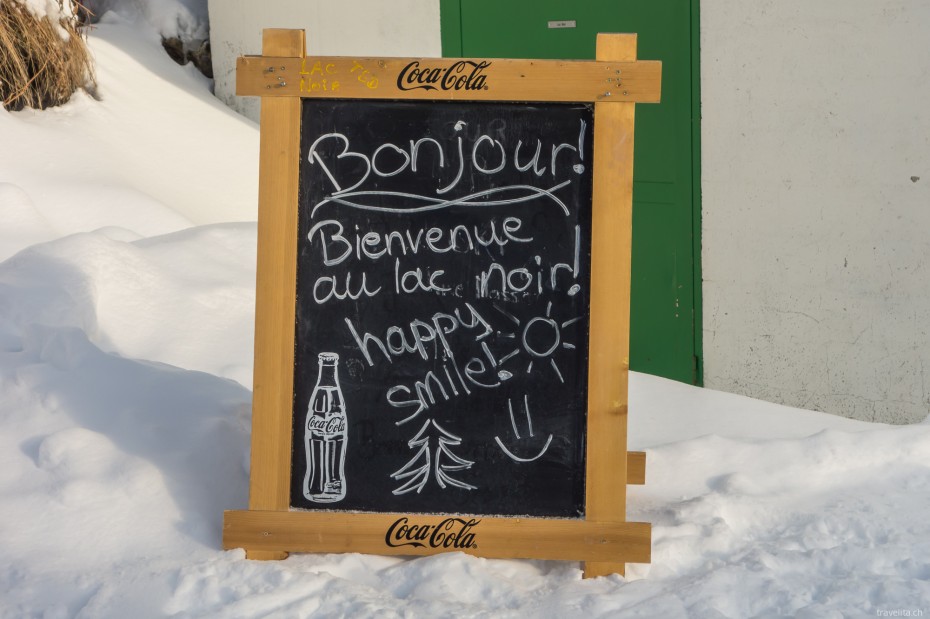 LAC
NOIR
Coca-Cola
Bonjour!
Bienvenue
au lac noir!
happy
smile!
Coca-Cola
Coca-Cola
travelita.ch